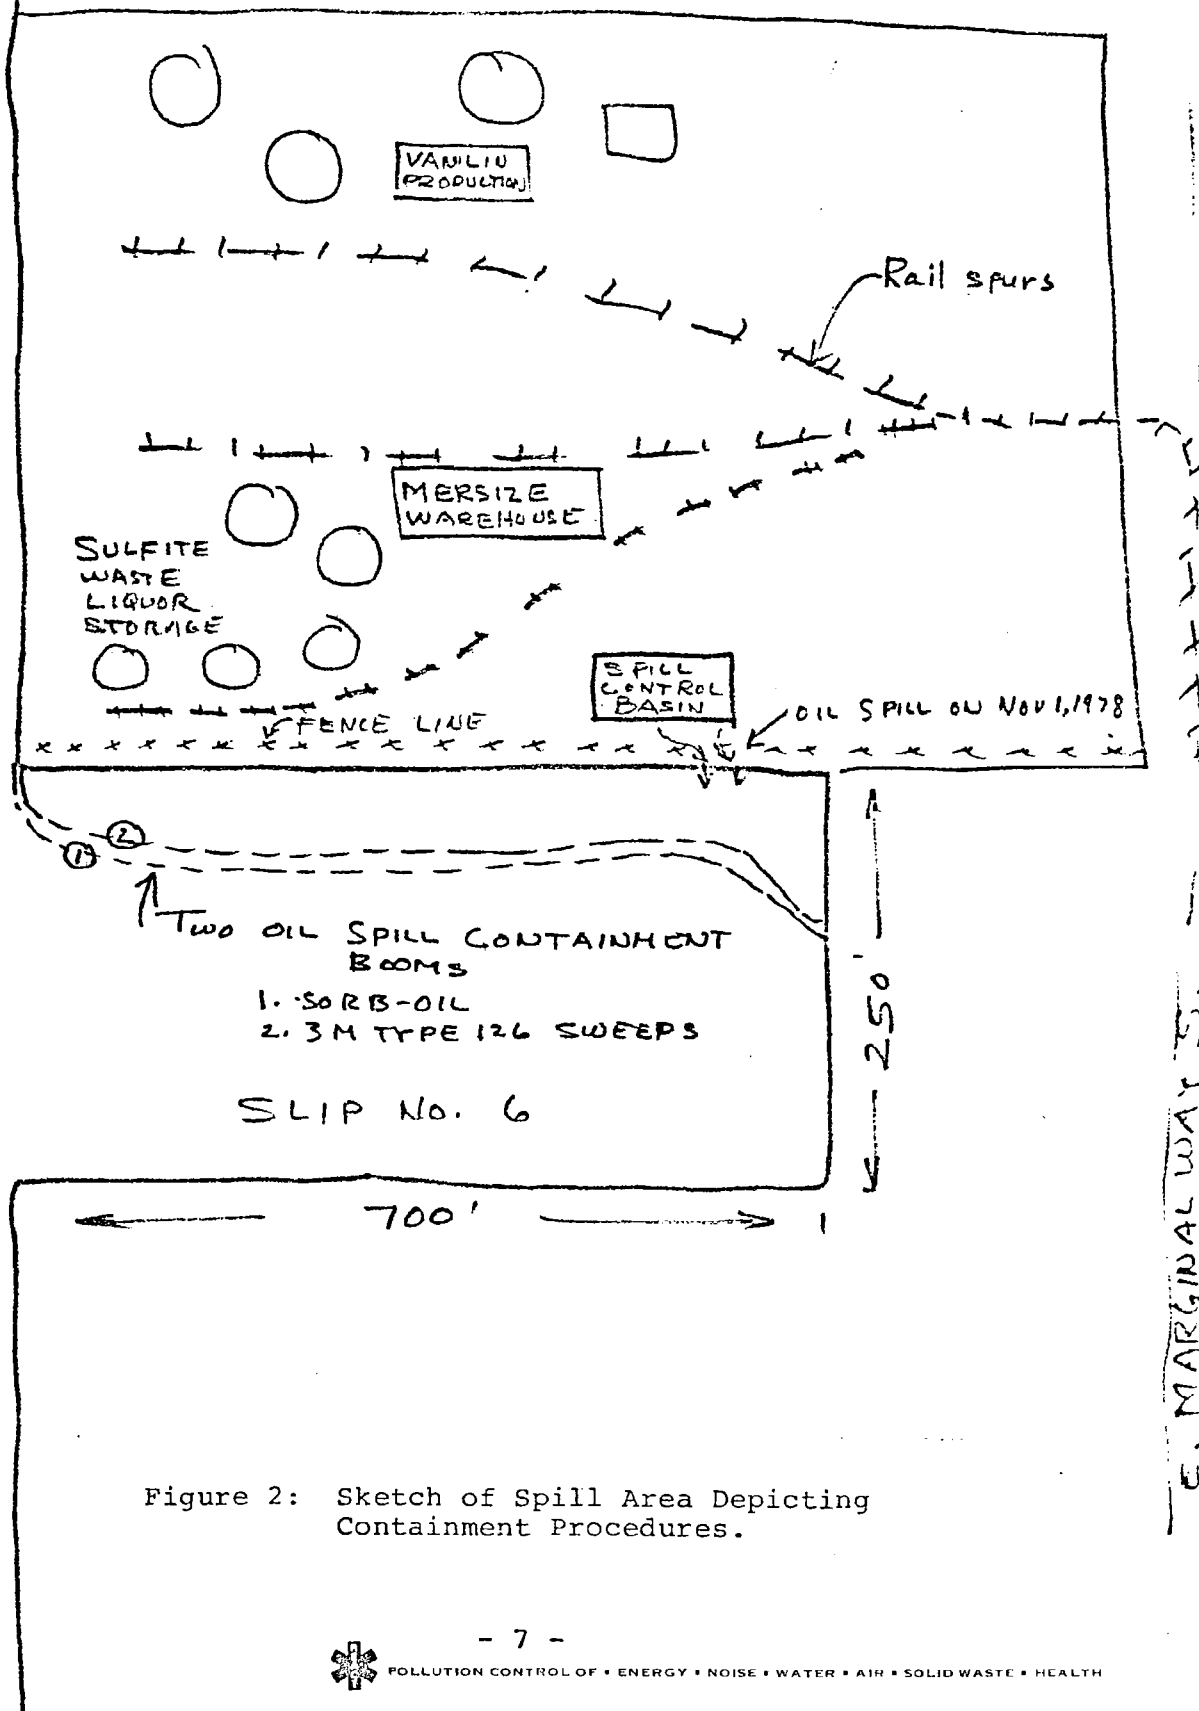 VANILIN
PRODUCTION
Rail spurs
MERSIZE
WAREHOUSE
SULFITE
WASTE
LIQUOR
STORAGE
SPILL
CONTROL
BASIN
OIL SPILL ON NOV 1, 1978
FENCE LINE
2
1
TWO OIL SPILL CONTAINMENT
BOOMS
1. SORB-OIL
2. 3M TYPE 126 SWEEPS
250'
SLIP NO. 6
700'
E. MARGINAL WAY S.
Figure 2: Sketch of Spill Area Depicting
Containment Procedures.
- 7 -
POLLUTION CONTROL OF • ENERGY • NOISE • WATER • AIR • SOLID WASTE • HEALTH